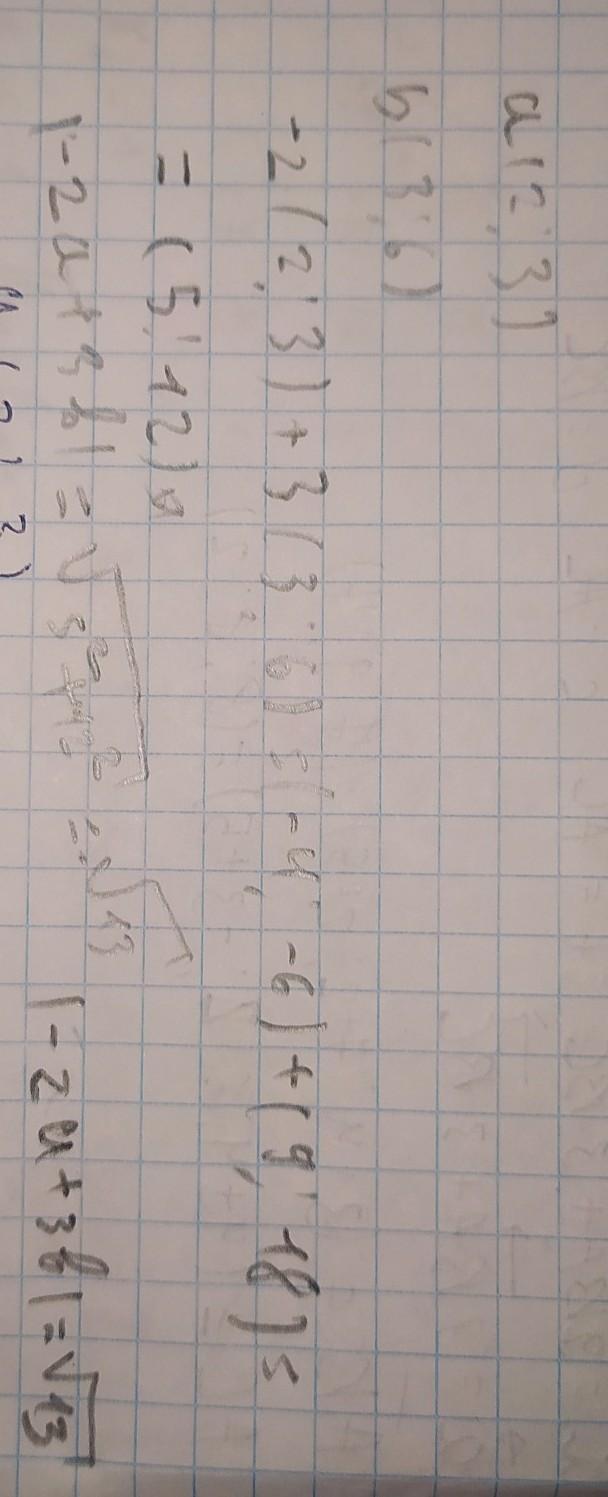 a(2; 3)
b(3; 6)
-2(2; 3)+3(3; 6)=(-4; -6)+(9; 18)=
=(5; 12)
|-2a+3b|=√5²+12²=√13 |-2a+3b|=√13